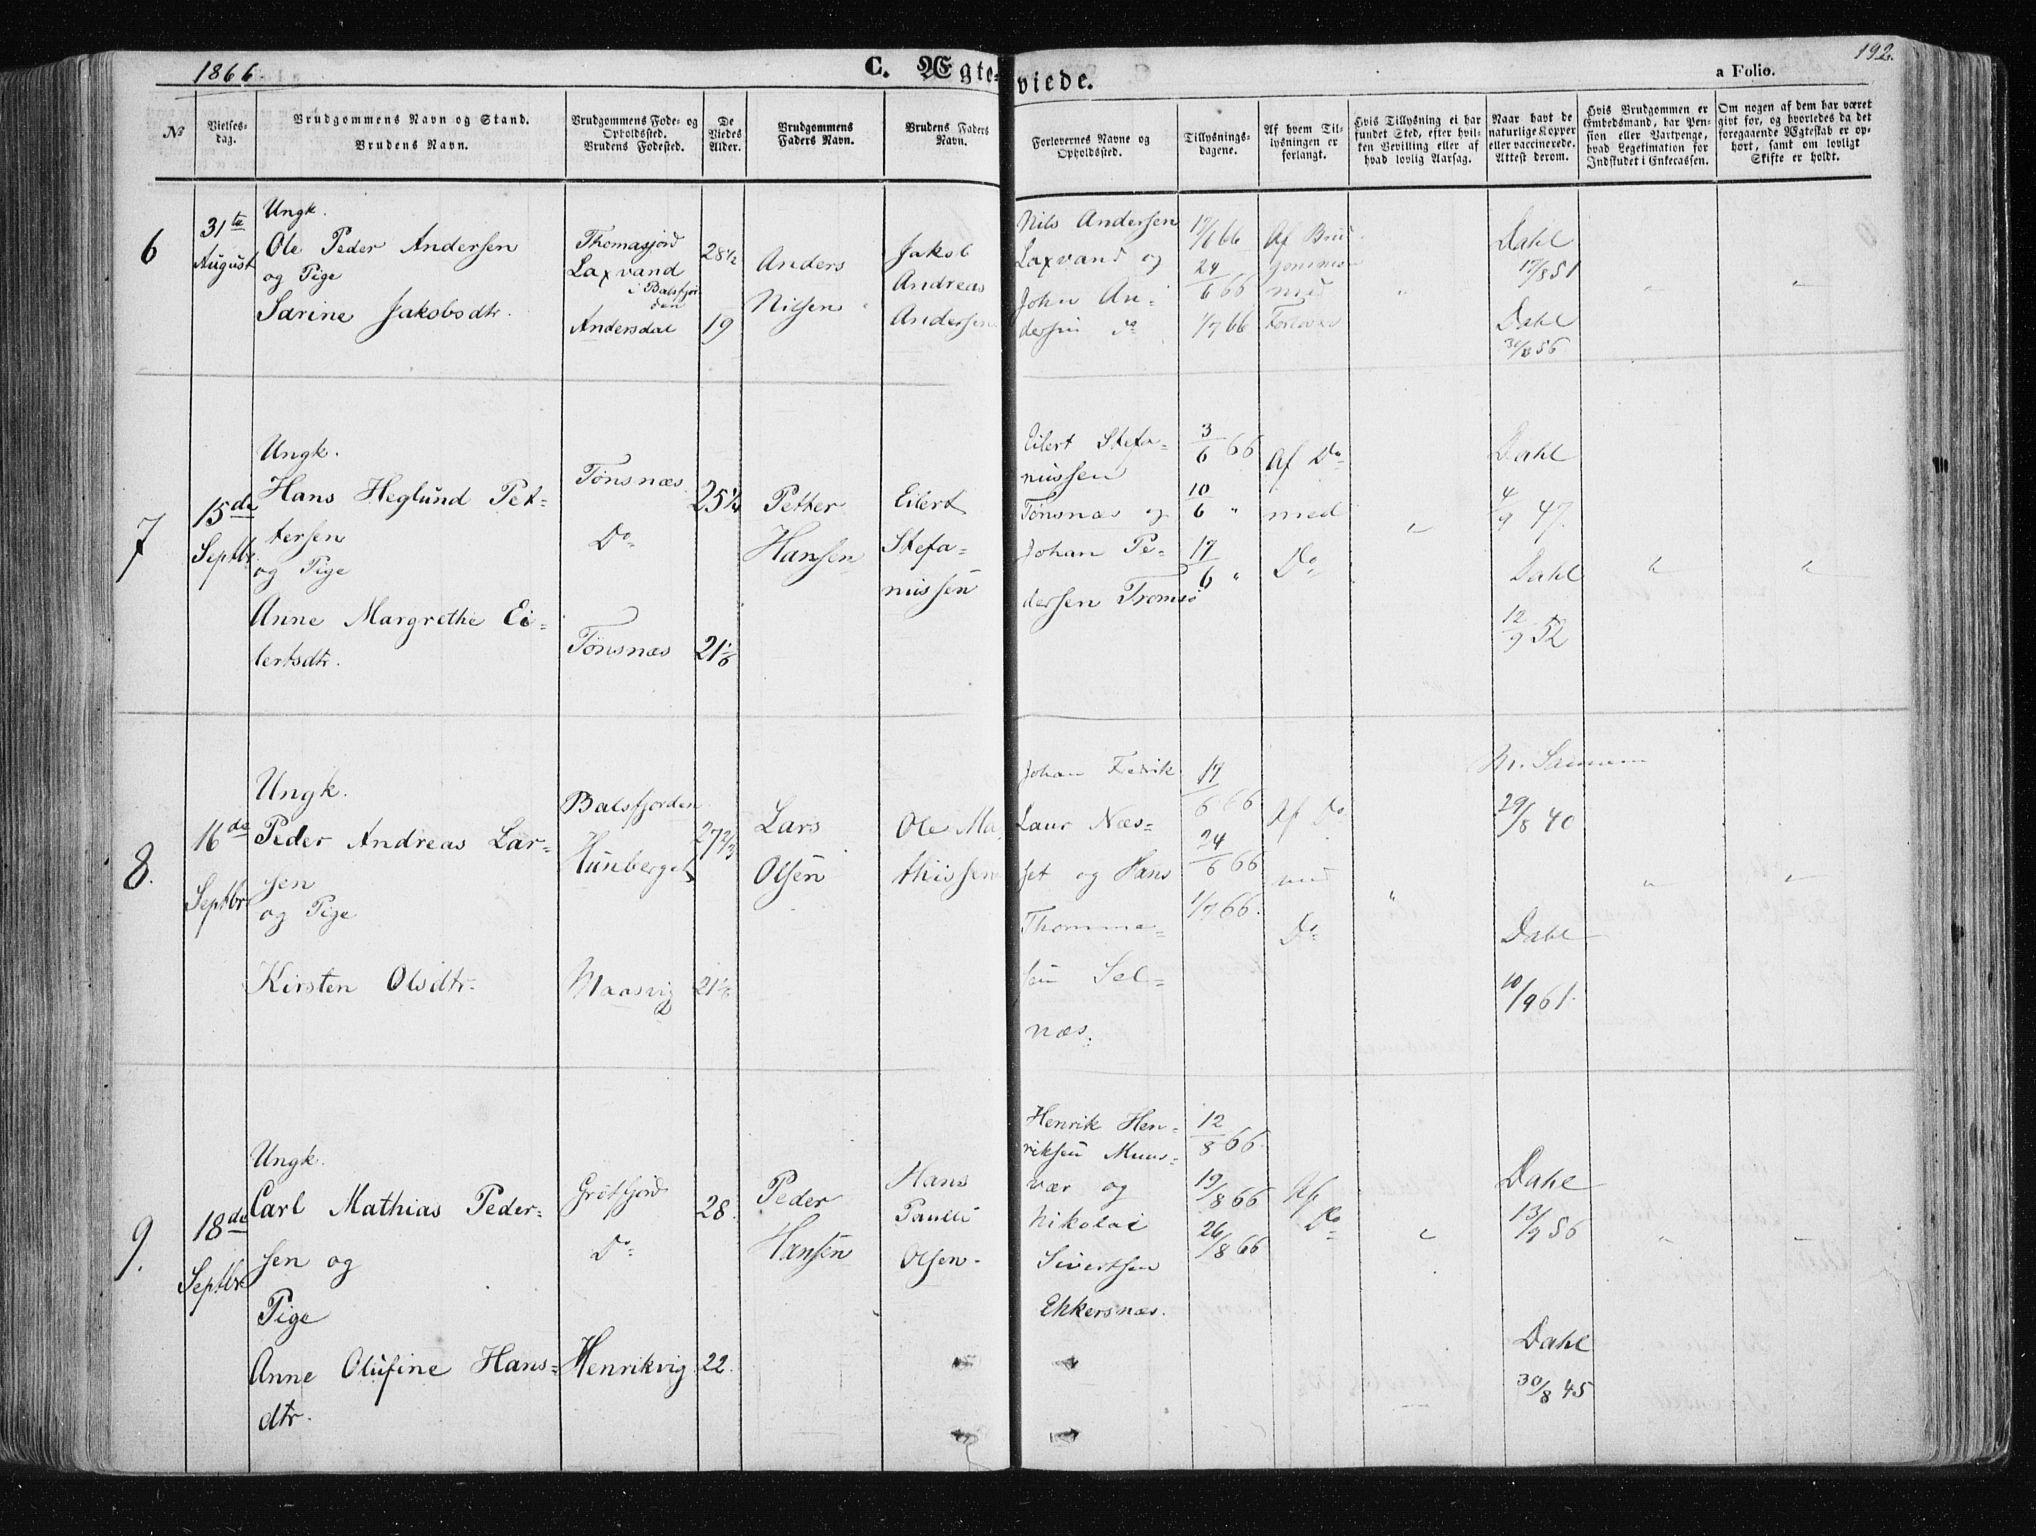 1866
C. Ægte-
viede.
192.
a Folio.
No
Vielses-
dag.
Brudgommens Navn og Stand.
Brudens Navn.
Brudgommens Føde- og
Opholdssted.
Brudens Fødested.
De
Viedes
Alder.
Brudgommens
Faders Navn.
Brudens Faders
Navn.
Forlovernes Navne og
Opholdssted.
Tillysnings-
dagene.
Af hvem Til-
lysningen er
forlangt.
Hvis Tillysning ei har
fundet Sted, efter hvil-
ken Bevilling eller af
hvad lovlig Aarsag.
Naar havt de
naturlige Kopper
eller vaccinerede.
Attest derom.
Hvis Brudgommen er
Embedsmand, har Pen-
sion eller Vartpenge,
hvad Legetimation for
Indskudet i Enkecassen.
Om nogen af dem har været
givt for, og hvorledes da det
foregaaende Ægteskab er op-
hørt, samt om lovligt
Skifte er holdt.
6
31te
August
Ungk.
Ole Peder Andersen
og Pige
Sarine Jakobsdtr.
Thomasjord
Laxvand
i Balsfjor
den
Andersdal
28 1/2
19
Anders
Nilsen
Jakob
Andreas
Andersen
Nils Andersen
Laxvand og
John An-
dersen do
17/6 66
24/6 66
1/7 66
Af Brud-
gommen
med
Forlover
"
Dahl
17/8 51
Dahl
"
"
7
15de
Septbr
Ungk.
Hans Heglund Pet-
tersen
og Pige
Anne Margrethe Ei-
lertsdtr.
Tönsnæs
Do
Tönsnæs
25 1/4
21 1/6
Petter
Hansen
Eilert
Stefa-
nussen
Eilert Stefa-
nussen
Tönsnæs og
Johan Pe-
dersen Tromsö
3/6 66
10/6 "
17/6 "
Af Do
med
Do
"
Dahl
4/9 47.
Dahl
12/9 52
"
"
8.
16de
Septbr
Ungk.
Peder Andreas Lar-
sen
og Pige
Kirsten Olsdtr.
Balsfjorden
Hunberget
Maasvig
27 2/3
Lars
Olsen
Ole Ma-
thissen
Johan Fedrik
Laur Næs-
set og Hans
Thomme-
sen Sel-
næs.
17/6 66
24/6 66
1/7 66.
Af Do
med
Do
"
29/8 40
Dahl
10/9 61.
"
"
9.
18de
Septbr
Ungk.
Carl Mathias Peder-
sen og
Pige
Anne Olufine Hans-
dtr.
Grötfjord
Do
Henrikvig
28.
22.
Peder
Hansen
Hans
Paulli
Olsen.
Henrik Hen-
riksen Muus-
vær og
Nikolai
Sivertsen
Ekkersnæs.
12/8 66.
19/8 66
26/8 66
Af
Do
"
Dahl
13/9 56
Dahl
30/8 45
"
"